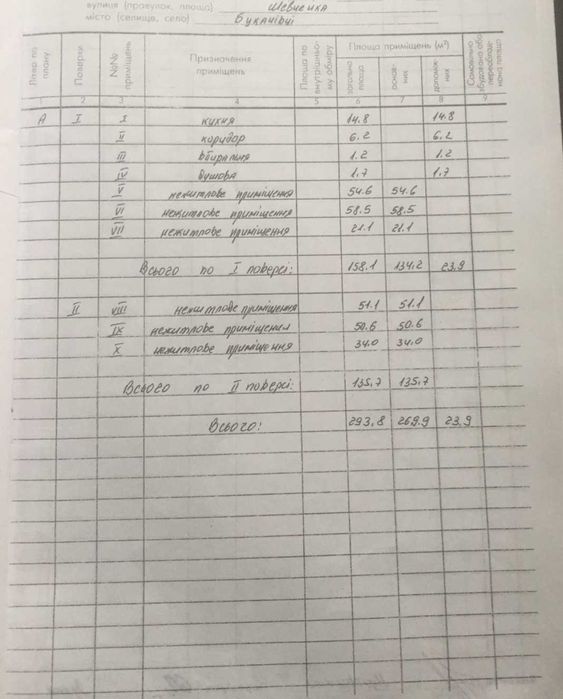 вулиця (провулок, площа) Шевченка
місто (селище, село) Букачівці
Літера по плану
Поверхи
№№ приміщень
Призначення приміщень
Площа по внутрішньому обміру
Площа приміщень (м²)
загальна площа
основних
допоміжних
Самовільно збудована або переобладнана площа
1 2 3 4 5 6 7 8 9
А І І кухня 14.8 14.8
ІІ коридор 6.2 6.2
ІІІ вбиральня 1.2 1.2
ІV душова 1.7 1.7
V нежитлове приміщення 54.6 54.6
VI нежитлове приміщення 58.5 58.5
VII нежитлове приміщення 21.1 21.1
Всього по І поверсі: 158.1 134.2 23.9
ІІ VIII нежитлове приміщення 51.1 51.1
IX нежитлове приміщення 50.6 50.6
X нежитлове приміщення 34.0 34.0
Всього по ІІ поверсі: 135.7 135.7
Всього: 293.8 269.9 23.9